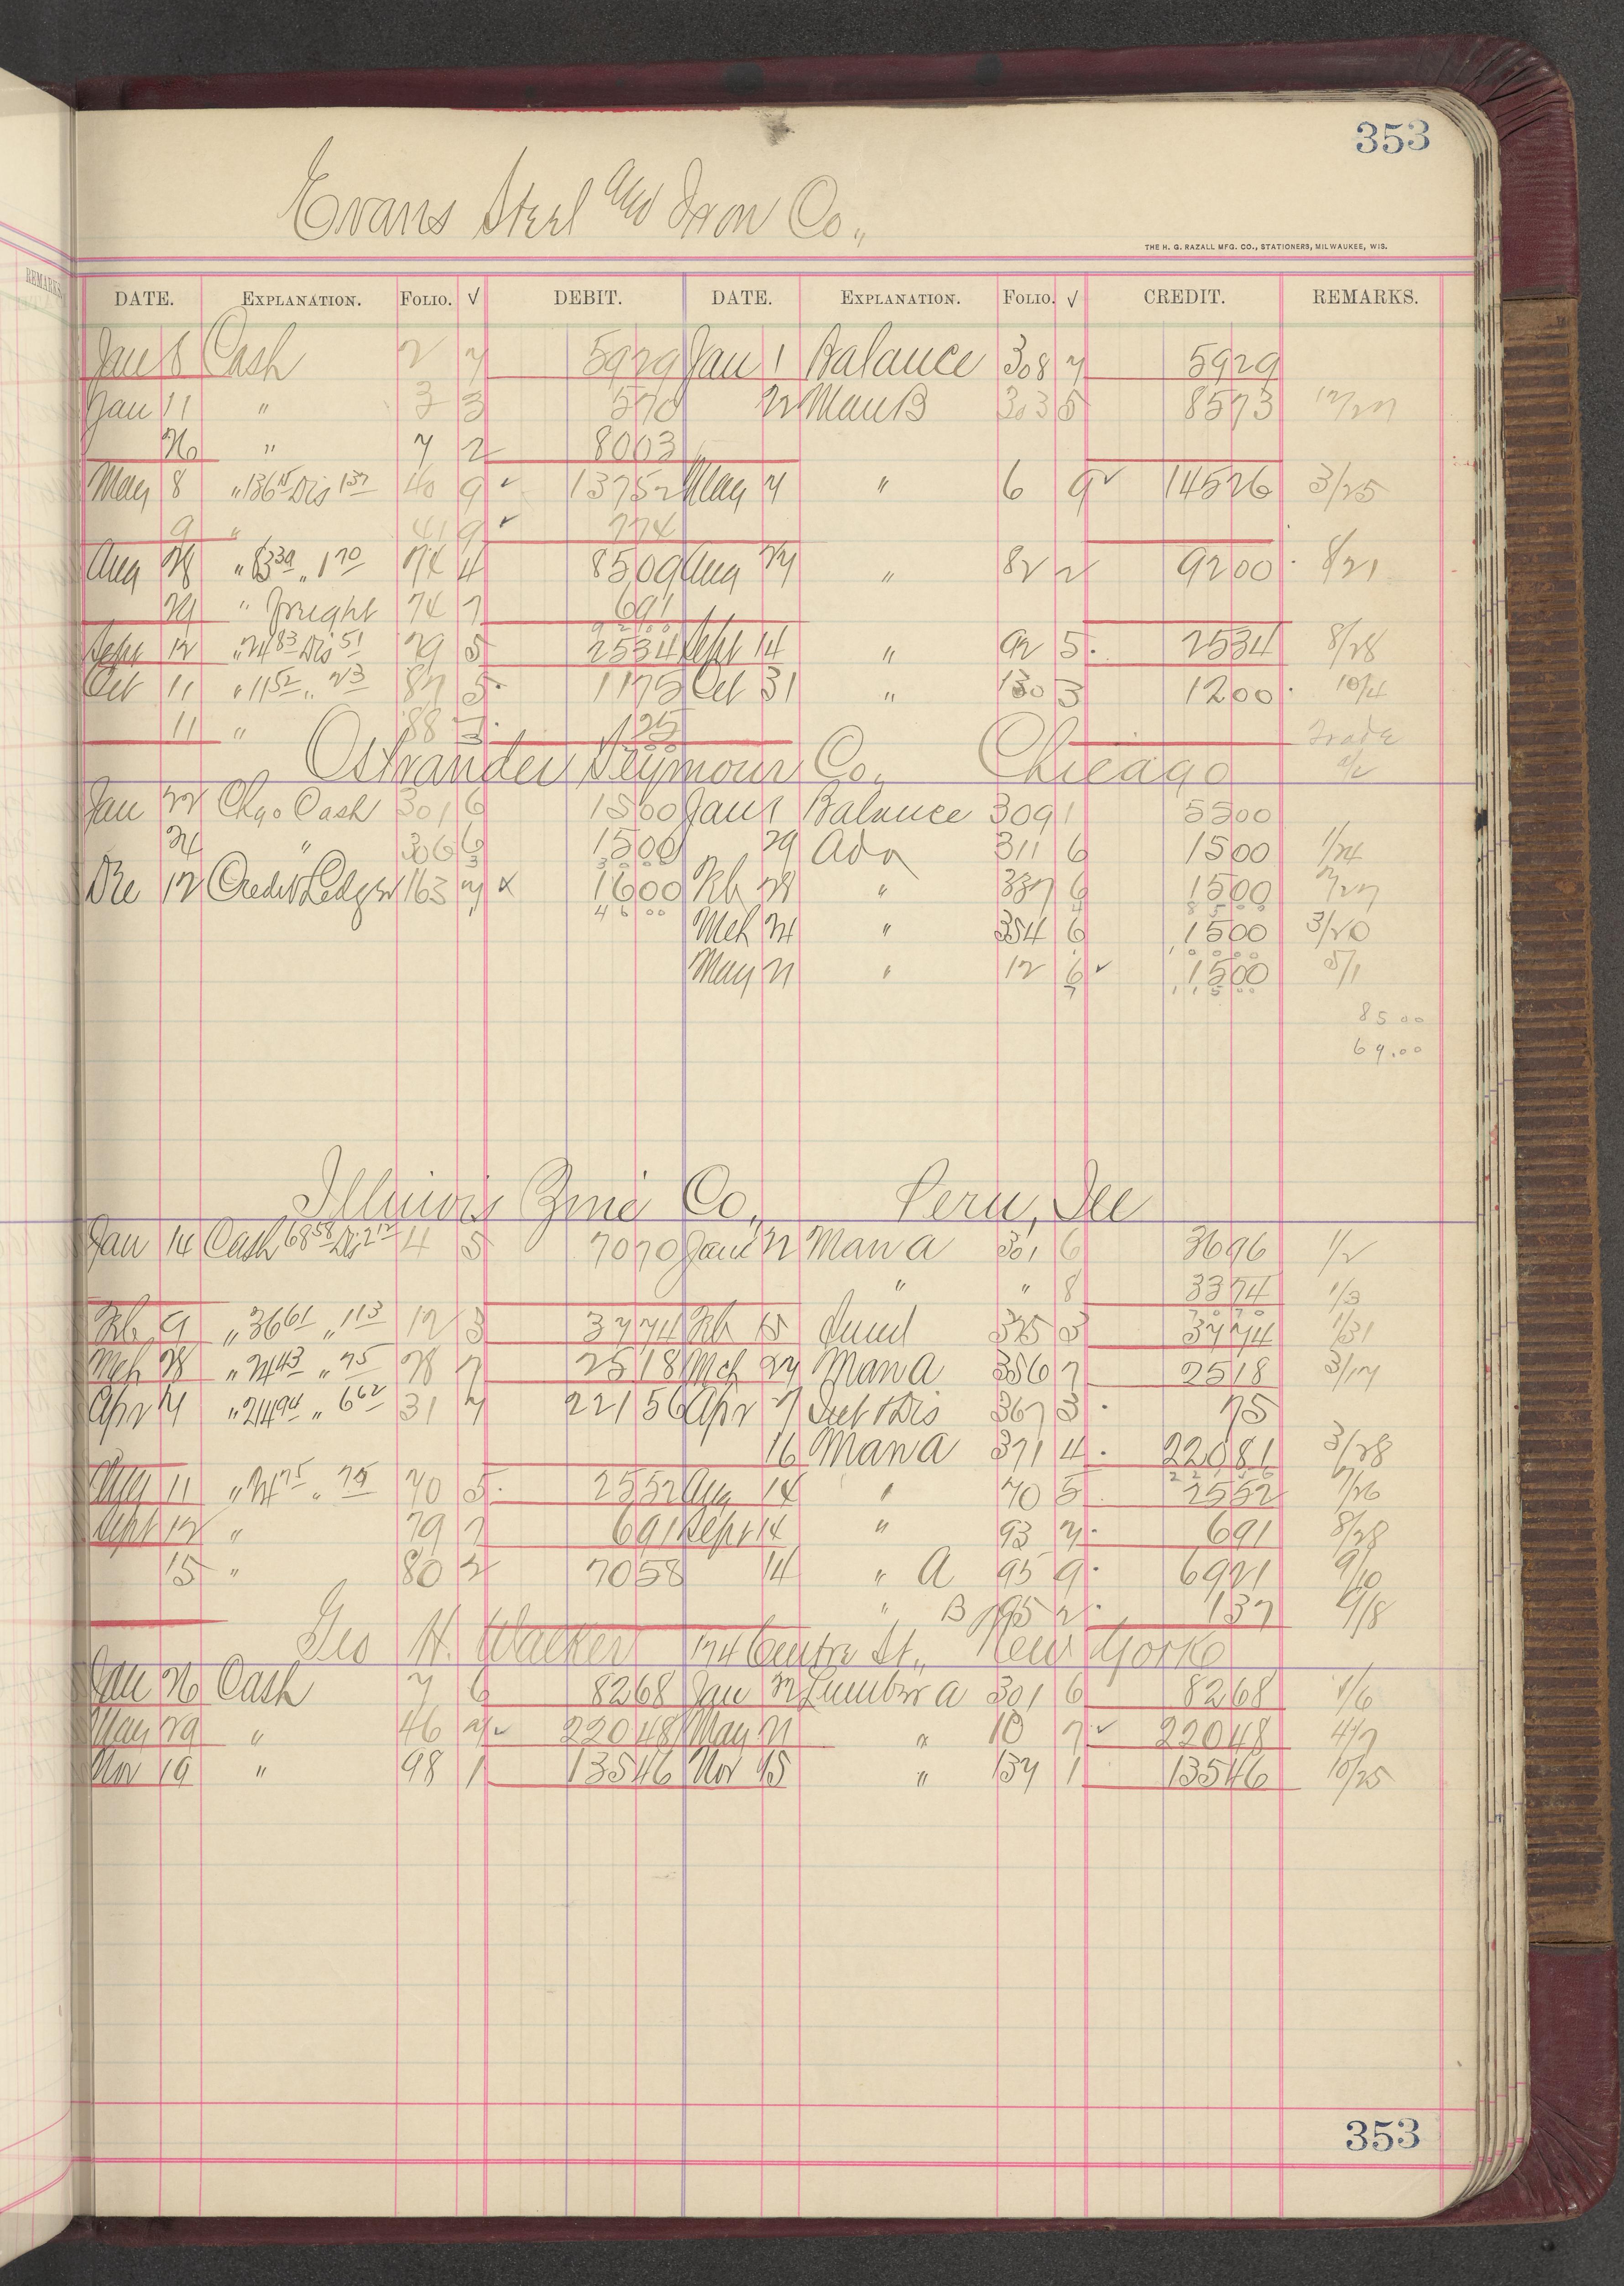 353
Evans Steel and Iron Co.,
THE H. G. RAZALL MFG. CO., STATIONERS, MILWAUKEE, WIS.
REMARKS
DATE. EXPLANATION. FOLIO. √ DEBIT. DATE. EXPLANATION. FOLIO. √ CREDIT. REMARKS.
Jan 8 Cash 2 7 5929 Jan 1 Balance 308 7 5929
Jan 11 " 3 3 570 22 Man B 303 5 8573 12/27
26 " 7 2 8003
May 8 " 136 15 Dis 1 37 40 9 ✓ 13752 May 7 " 6 9 ✓ 14526 3/25
9 " 41 9 ✓ 774
Aug 28 " 83 39 " 1 70 74 4 8509 Aug 24 " 82 2 9200 8/21
29 " Freight 74 7 691
9200
Sept 12 " 24 83 Dis 51 79 5 2534 Sept 14 " 92 5 2534 8/28
Oct 11 " 11 52 " 23 87 5 1175 Oct 31 " 130 3 1200 10/4
11 " 88 7 25
Trade
Ostrander Seymour Co., Chicago a/c
Jan 22 Chgo Cash 301 6 1500 Jan 1 Balance 309 1 5500
24 " 306 6 1500 29 Ada 311 6 1500 1/24
3000
Dec 12 Credit Ledger 163 7 x 1600 Feb 28 " 337 6 1500 2/27
4600 8500
Mch 24 " 354 6 1500 3/20
10000
May 21 " 12 6 ✓ 1500 5/1
11500
8500
69.00
Illinois Zinc Co., Peru, Ill
Jan 14 Cash 68 58 Dis 2 12 4 5 7070 Jan 22 Man A 301 6 3696 1/2
" " 8 3374 1/3
7070
Feb 9 " 36 61 " 1 13 12 3 3774 Feb 15 325 3 3774 1/31
Mch 28 " 24 43 " 75 28 7 2518 Mch 27 Man A 356 7 2518 3/17
Apr 7 " 214 94 " 6 62 31 7 22156 Apr 7 Int & Dis 367 3 75
16 Man A 371 4 22081 3/28
22156
Aug 11 " 24 75 " 75 70 5 2552 Aug 14 " 70 5 2552 7/26
Sept 12 " 79 7 691 Sept 14 " 93 7 691 8/28
15 " 80 2 7058 14 " A 95 9 6921 9/10
" B 95 2 137 9/8
Geo H. Walker 174 Centre St., New York
Jan 26 Cash 7 6 8268 Jan 22 Lumber A 301 6 8268 1/6
May 29 " 46 7 ✓ 22048 May 21 " 10 7 ✓ 22048 4/7
Nov 19 " 98 1 13546 Nov 15 " 137 1 13546 10/25
353